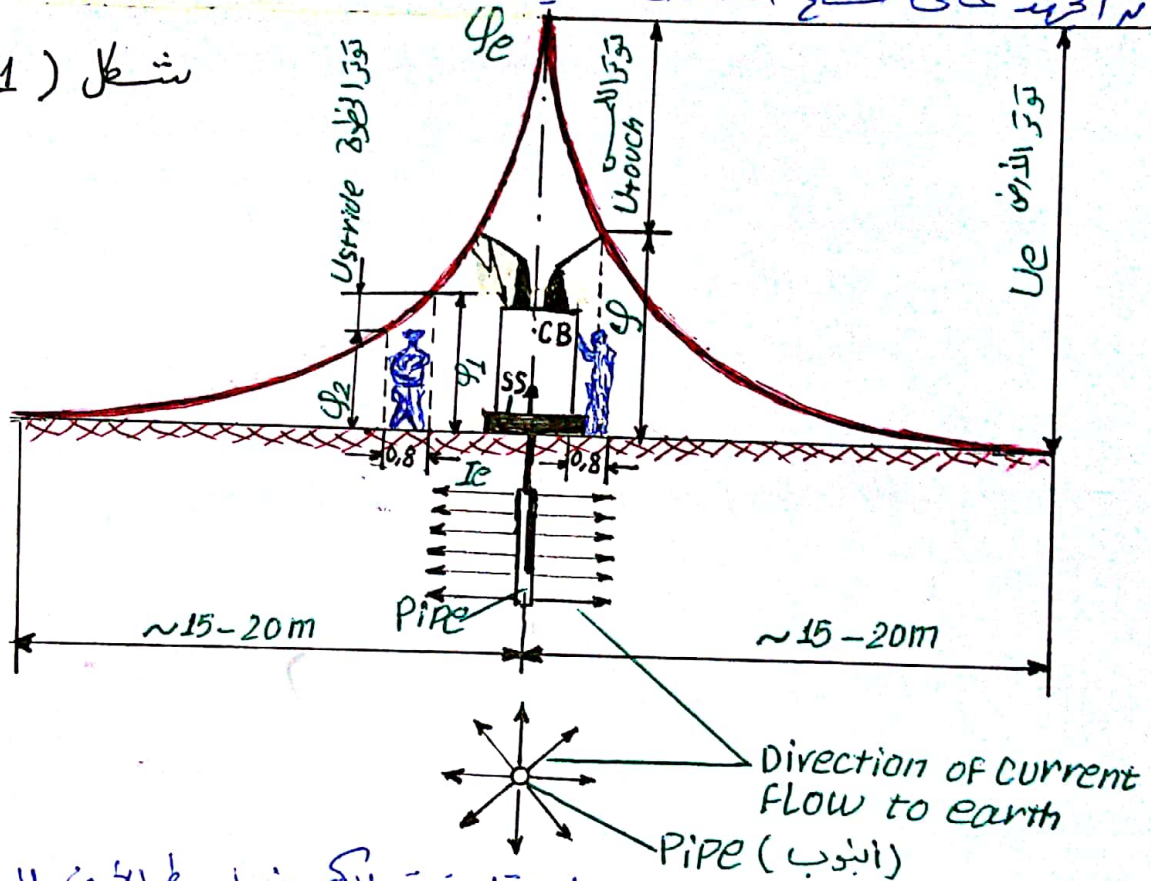 شكل (1
φe
توتر الخطوة
Ustride
توتر اللمس
Utouch
توتر الأرض
Ue
CB
SS
φ
φ1
φ2
0,8
Ie
0,8
PiPe
~15-20m
~15-20m
Direction of current
FLOW to earth
PiPe (انبوب)